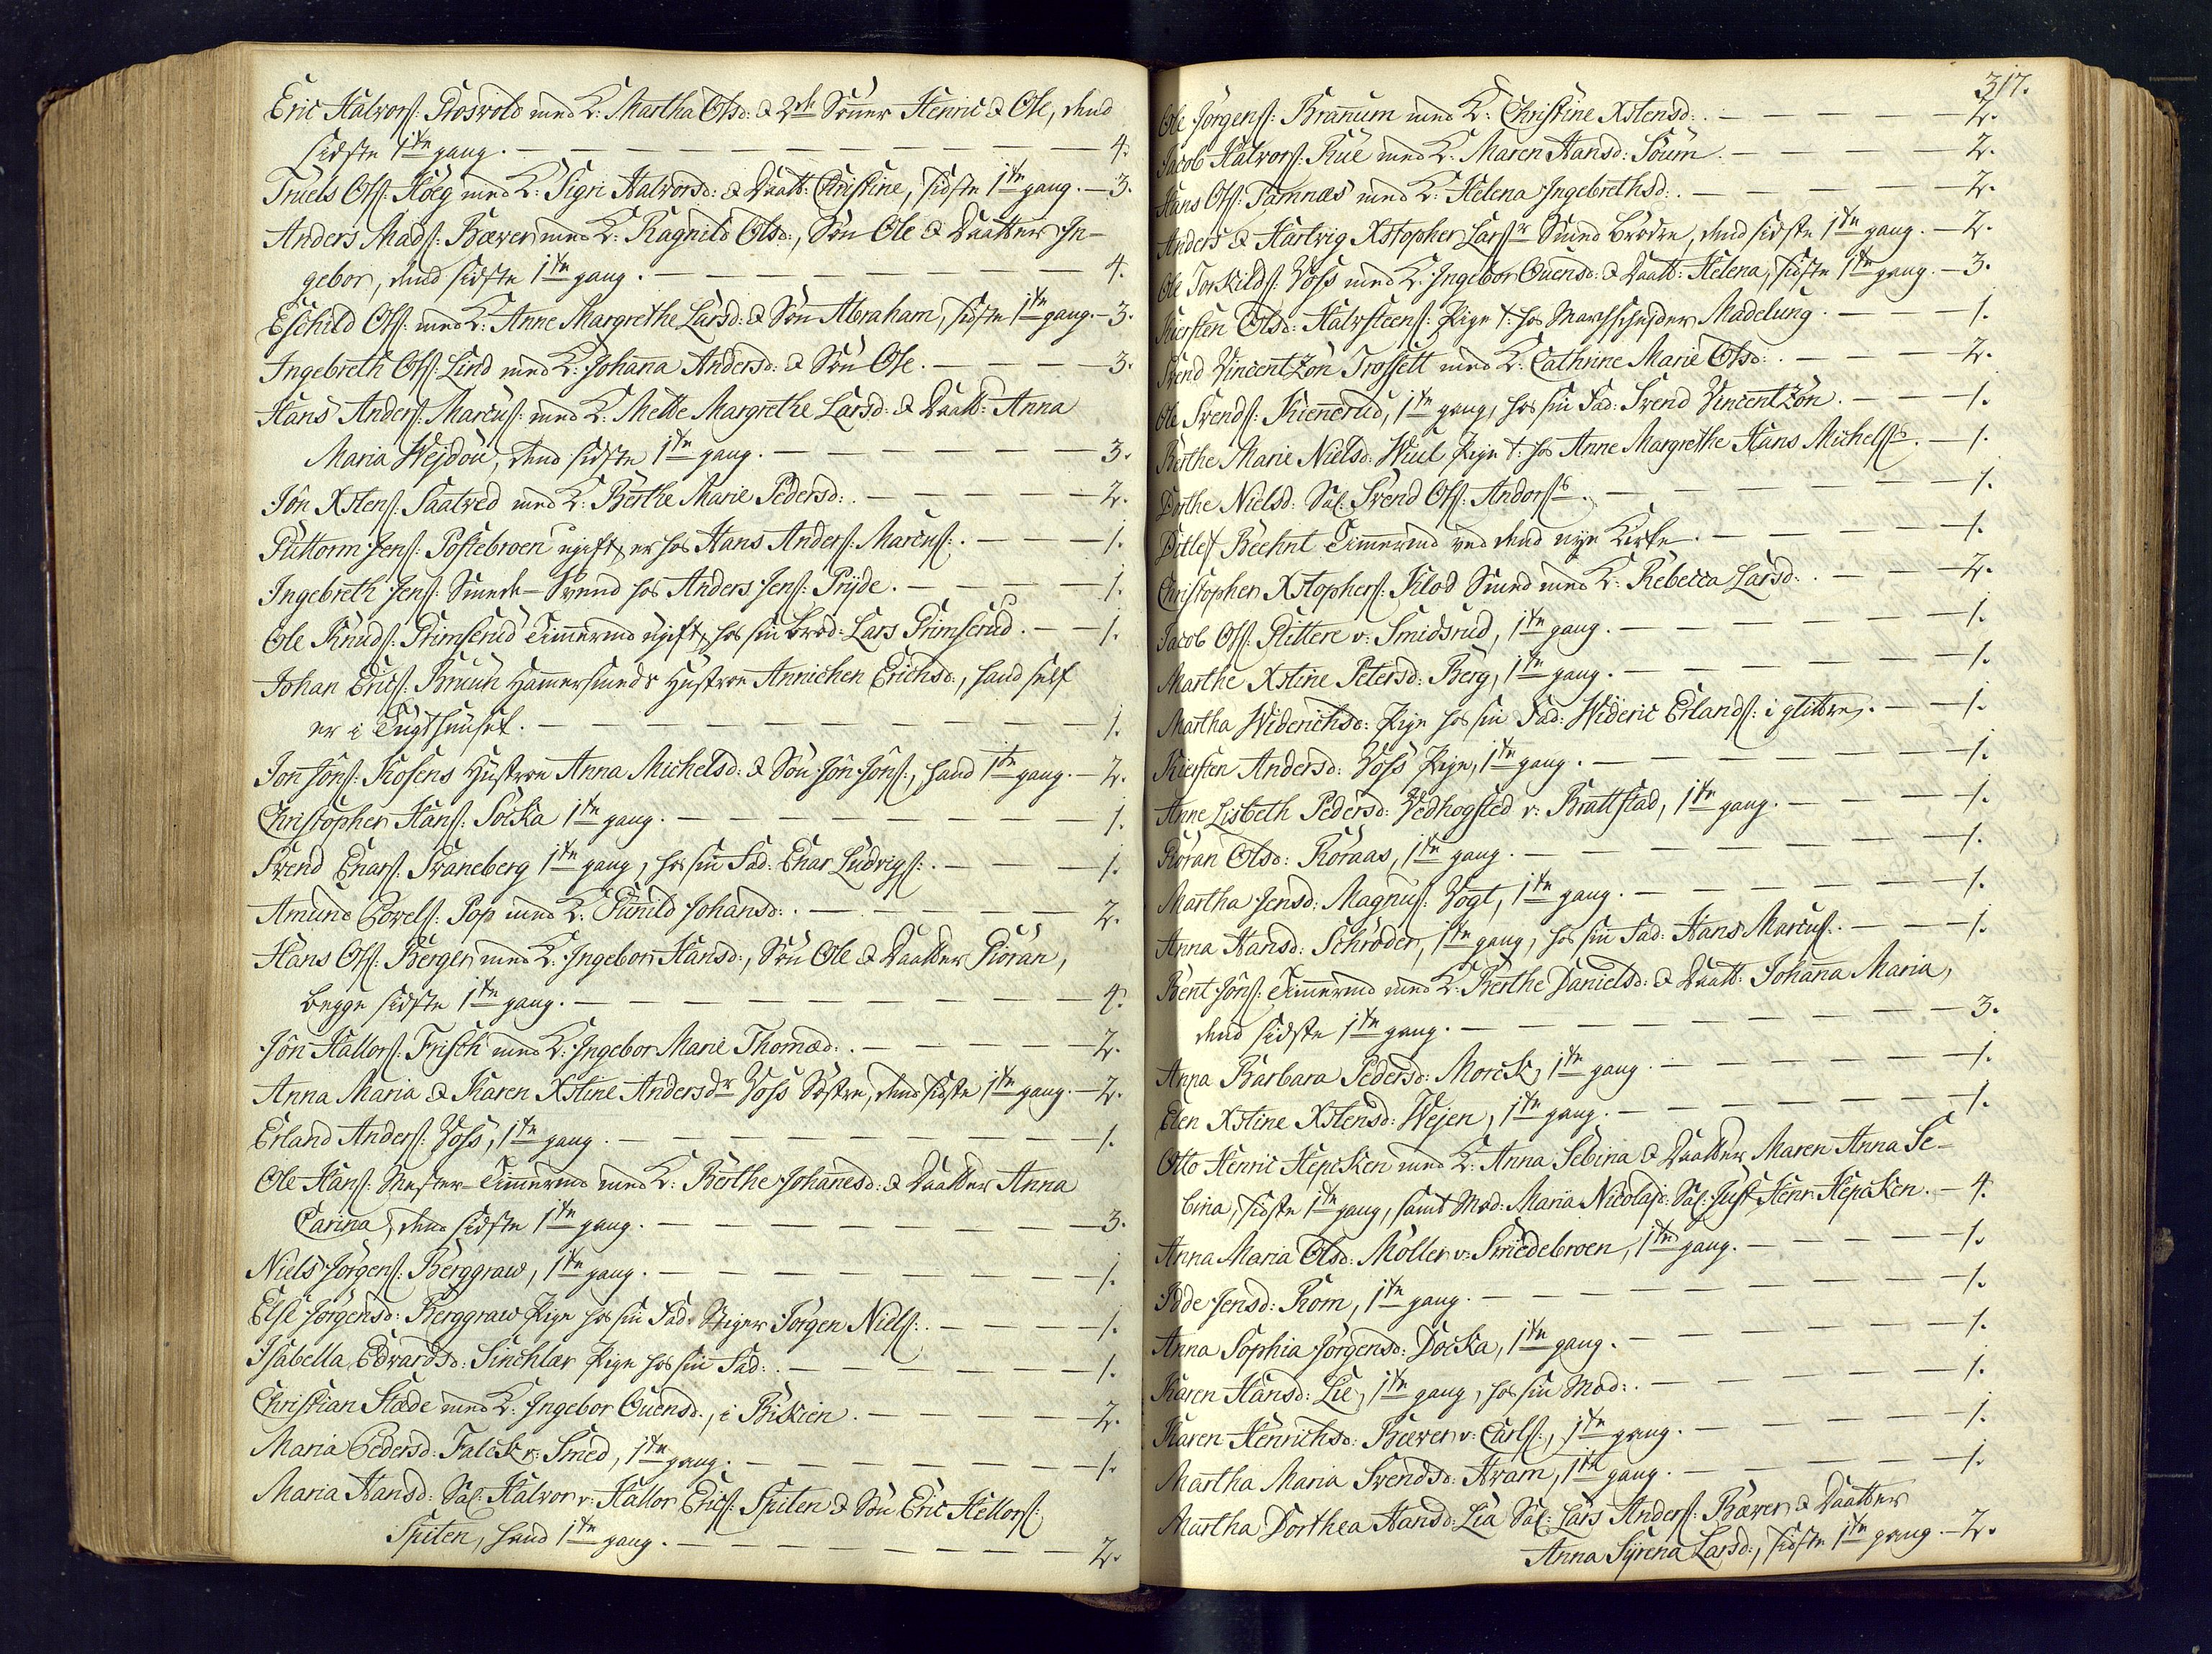 Eric Halvorß: Poswold med K: Martha Olsd: & 2de Sønner Henric & Ole, dend
sidste 1ste gang. — 4.
Truels Olß: Høeg med K: Sigri Halvorsd: & Daatt: Christine, sidste 1ste gang. — 3.
Anders Madß: Bæver med K: Ragnild Olsd:, Søn Ole & Daatter In-
gebor, dend sidste 1ste gang. — 4.
Eschild Olß: med K: Anne Margrethe Larsd: & Søn Abraham, sidste 1ste gang. — 3.
Ingebreth Olß: Lind med K: Johanna Andersd: & Søn Ole. — 3.
Hans Anderß: Marcuß: med K: Mette Margrethe Larsd: & Daatt: Anna
Maria Wejdou, dend sidste 1ste gang. — 3.
Jôn Xstenß: Saatved med K: Berthe Marie Pedersd: — 2.
Guttorm Jenß: Postebroen ugift, er hos Hans Anderß: Marcuß: — 1.
Ingebreth Jenß: Smede-Svend hos Anders Jenß: Pryde. — 1.
Ole Knudß: Grimserud Timmermd ugift, hos sin Brod: Lars Grimserud. — 1.
Johan Ericß: Bruun Hammersmeds Hustroe Annichen Erichsd:, hand self
er i Tugthuuset. — 1.
Jon Jônß: Rosens Hustroe Anna Michelsd: & Søn Jôn Jônß:, hand 1ste gang. — 2.
Christopher Hanß: Socka 1ste gang. — 1.
Svend Enarß: Svaneberg 1ste gang, hos sin Fad: Enar Ludvigß: — 1.
Amund Povelß: Pop med K: Gunild Johansd: — 2.
Hans Olß: Berger med K: Ingebor Hansd:, Søn Ole & Daatter Gioran,
begge sidste 1ste gang. — 4.
Jôn Hallorß: Frisch med K: Ingebor Marie Thomæd: — 2.
Anna Maria & Karen Xstine Andersdr Voss Søstre, dend sidste 1ste gang. — 2.
Erland Anderß: Voss, 1ste gang. — 1.
Ole Hanß: Mester-Timmermd med K: Berthe Johannesd: & Daatter Anna
Carina, dend sidste 1ste gang. — 3.
Niels Jørgenß: Berggraw, 1ste gang. — 1.
Else Jørgensd: Berggraw Pige hos sin Fad: Stiger Jørgen Nielß: — 1.
Isabella Edvardsd: Sinchlar Pige hos sin Fad: — 1.
Christian Stæde med K: Ingebor Ouensd:, i Biskien. — 2.
Maria Pedersd: Falck v: Smed, 1ste gang. — 1.
Maria Hansd: Sal: Halvor v: Hallor Ericß: Spiten & Søn Eric Hellorß:
Spiten, hand 1ste gang. — 2.
317.
Ole Jørgenß: Brannum med K: Christine Xstensd: — 2.
Jacob Halvorß: Rue med K: Maren Hansd: Soum. — 2.
Hans Olß: Tamnæs med K: Helena Ingebrethsd: — 2.
Anders & Hartvig Xstopher Larßr Smed Brødre, dend sidste 1ste gang. — 2.
Ole Torkildß: Voss med K: Ingebor Ouensd: & Daatt: Helena, sidste 1ste gang. — 3.
Kiersten Olsd: Halvsteenß: Pige t: hos Marchschejder Madelung. — 1.
Svend Vincentzôn Trossett med K: Cathrine Marie Olsd: — 2.
Ole Svendß: Kiennerud, 1ste gang, hos sin Fad: Svend Vincentzôn. — 1.
Berthe Marie Nielsd: Wiul Pige t: hos Anne Margrethe Hans Michelßs. — 1.
Dorthe Nielsd: Sal: Svend Olß: Andorßs. — 1.
Ditlef Beehnt Timmermd ved dend nye Kirke. — 1.
Christopher Xstopherß: Klod Smed med K: Rebecca Larsd: — 2.
Jacob Olß: Glittere v: Smidsrud, 1ste gang. — 1.
Marthe Xstine Petersd: Berg, 1ste gang. — 1.
Martha Widerichsd: Pige hos sin Fad: Wideric Erlandß: i glittre. — 1.
Kiersten Andersd: Voss Pige, 1ste gang. — 1.
Anne Lisbeth Pedersd: Vedhogsted v: Brattstad, 1ste gang. — 1.
Gioran Olsd: Røraas, 1ste gang. — 1.
Martha Jensd: Magnuß: Vogt, 1ste gang. — 1.
Anna Hansd: Schrøder, 1ste gang, hos sin Fad: Hans Marcuß: — 1.
Bent Jônß: Timmermd med K: Berthe Danielsd: & Daatt: Johanna Maria,
dend sidste 1ste gang. — 3.
Anna Barbara Pedersd: Morck, 1ste gang. — 1.
Elen Xstine Xstensd: Wejen, 1ste gang. — 1.
Otto Henric Hepcken med K: Anna Sebina & Daatter Maren Anna Se-
bina, sidste 1ste gang, samt Mod: Maria Nicolajd: Sal: Just Henr: Hepcken. — 4.
Anna Maria Olsd: Møller v: Smedebroen, 1ste gang. — 1.
Bode Jensd: Rom, 1ste gang. — 1.
Anna Sophia Jørgensd: Docka, 1ste gang. — 1.
Karen Hansd: Lie, 1ste gang, hos sin Mod: — 1.
Karen Henrichsd: Bæver v: Carlß:, 1ste gang. — 1.
Martha Maria Svendsd: Hvam, 1ste gang. — 1.
Martha Dorthea Hansd: Lia Sal: Lars Anderß: Bæver & Daatter
Anna Syrena Larsd:, sidste 1ste gang. — 2.